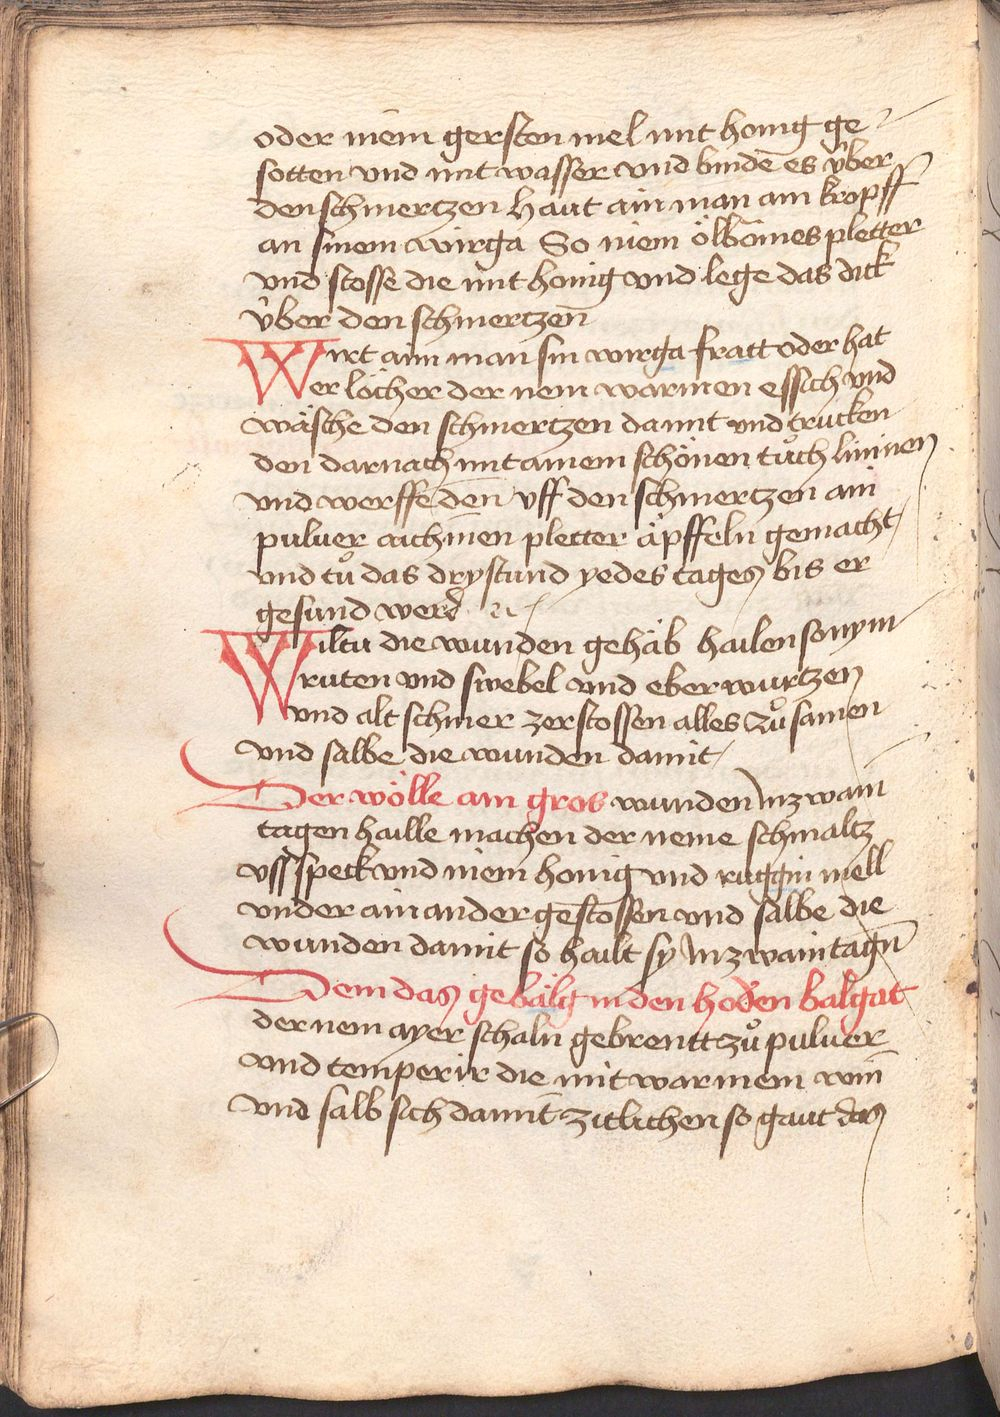 oder niem gersten mel mit honig ge
sotten vnd mit wasser vnd binde es v̊ber
den schmertzen Haut ain man am kropff
an sinem wirga So niem ölbömes pletter
vnd stosse die mit honig vnd lege das dick
v̊ber den schmertzen
Wirt aim man sin wirga fratt oder hat
er löcher der nem warmen essich vnd
wäsche den schmertzen damit vnd trucken
den darnach mit ainem schönen tůch lininen
vnd werffe den vff den schmertzen ain
puluer aichinen pletter äpffeln gemacht
vnd tů das drystund yedes tages bis er
gesund werd
Wiltu die wunden gehäb hailen so nym
ruten vnd swebel vnd eberwurtzen
vnd alt schmer zerstossen alles zůsamen
vnd salbe die wunden damit
Der wölle ain gros wunden In zwain
tagen haille machen der neme schmaltz
vss speck vnd niem honig vnd ruggin mell
vnder ainander gestossen vnd salbe die
wunden damit so hailt sy In zwain tagn
Dem das gebälg in den hoden balg gat
der nem ayer schaln gebrentt zů puluer
vnd temperir die mit warmem win
vnd salb sich damit zitlichen so gaut das